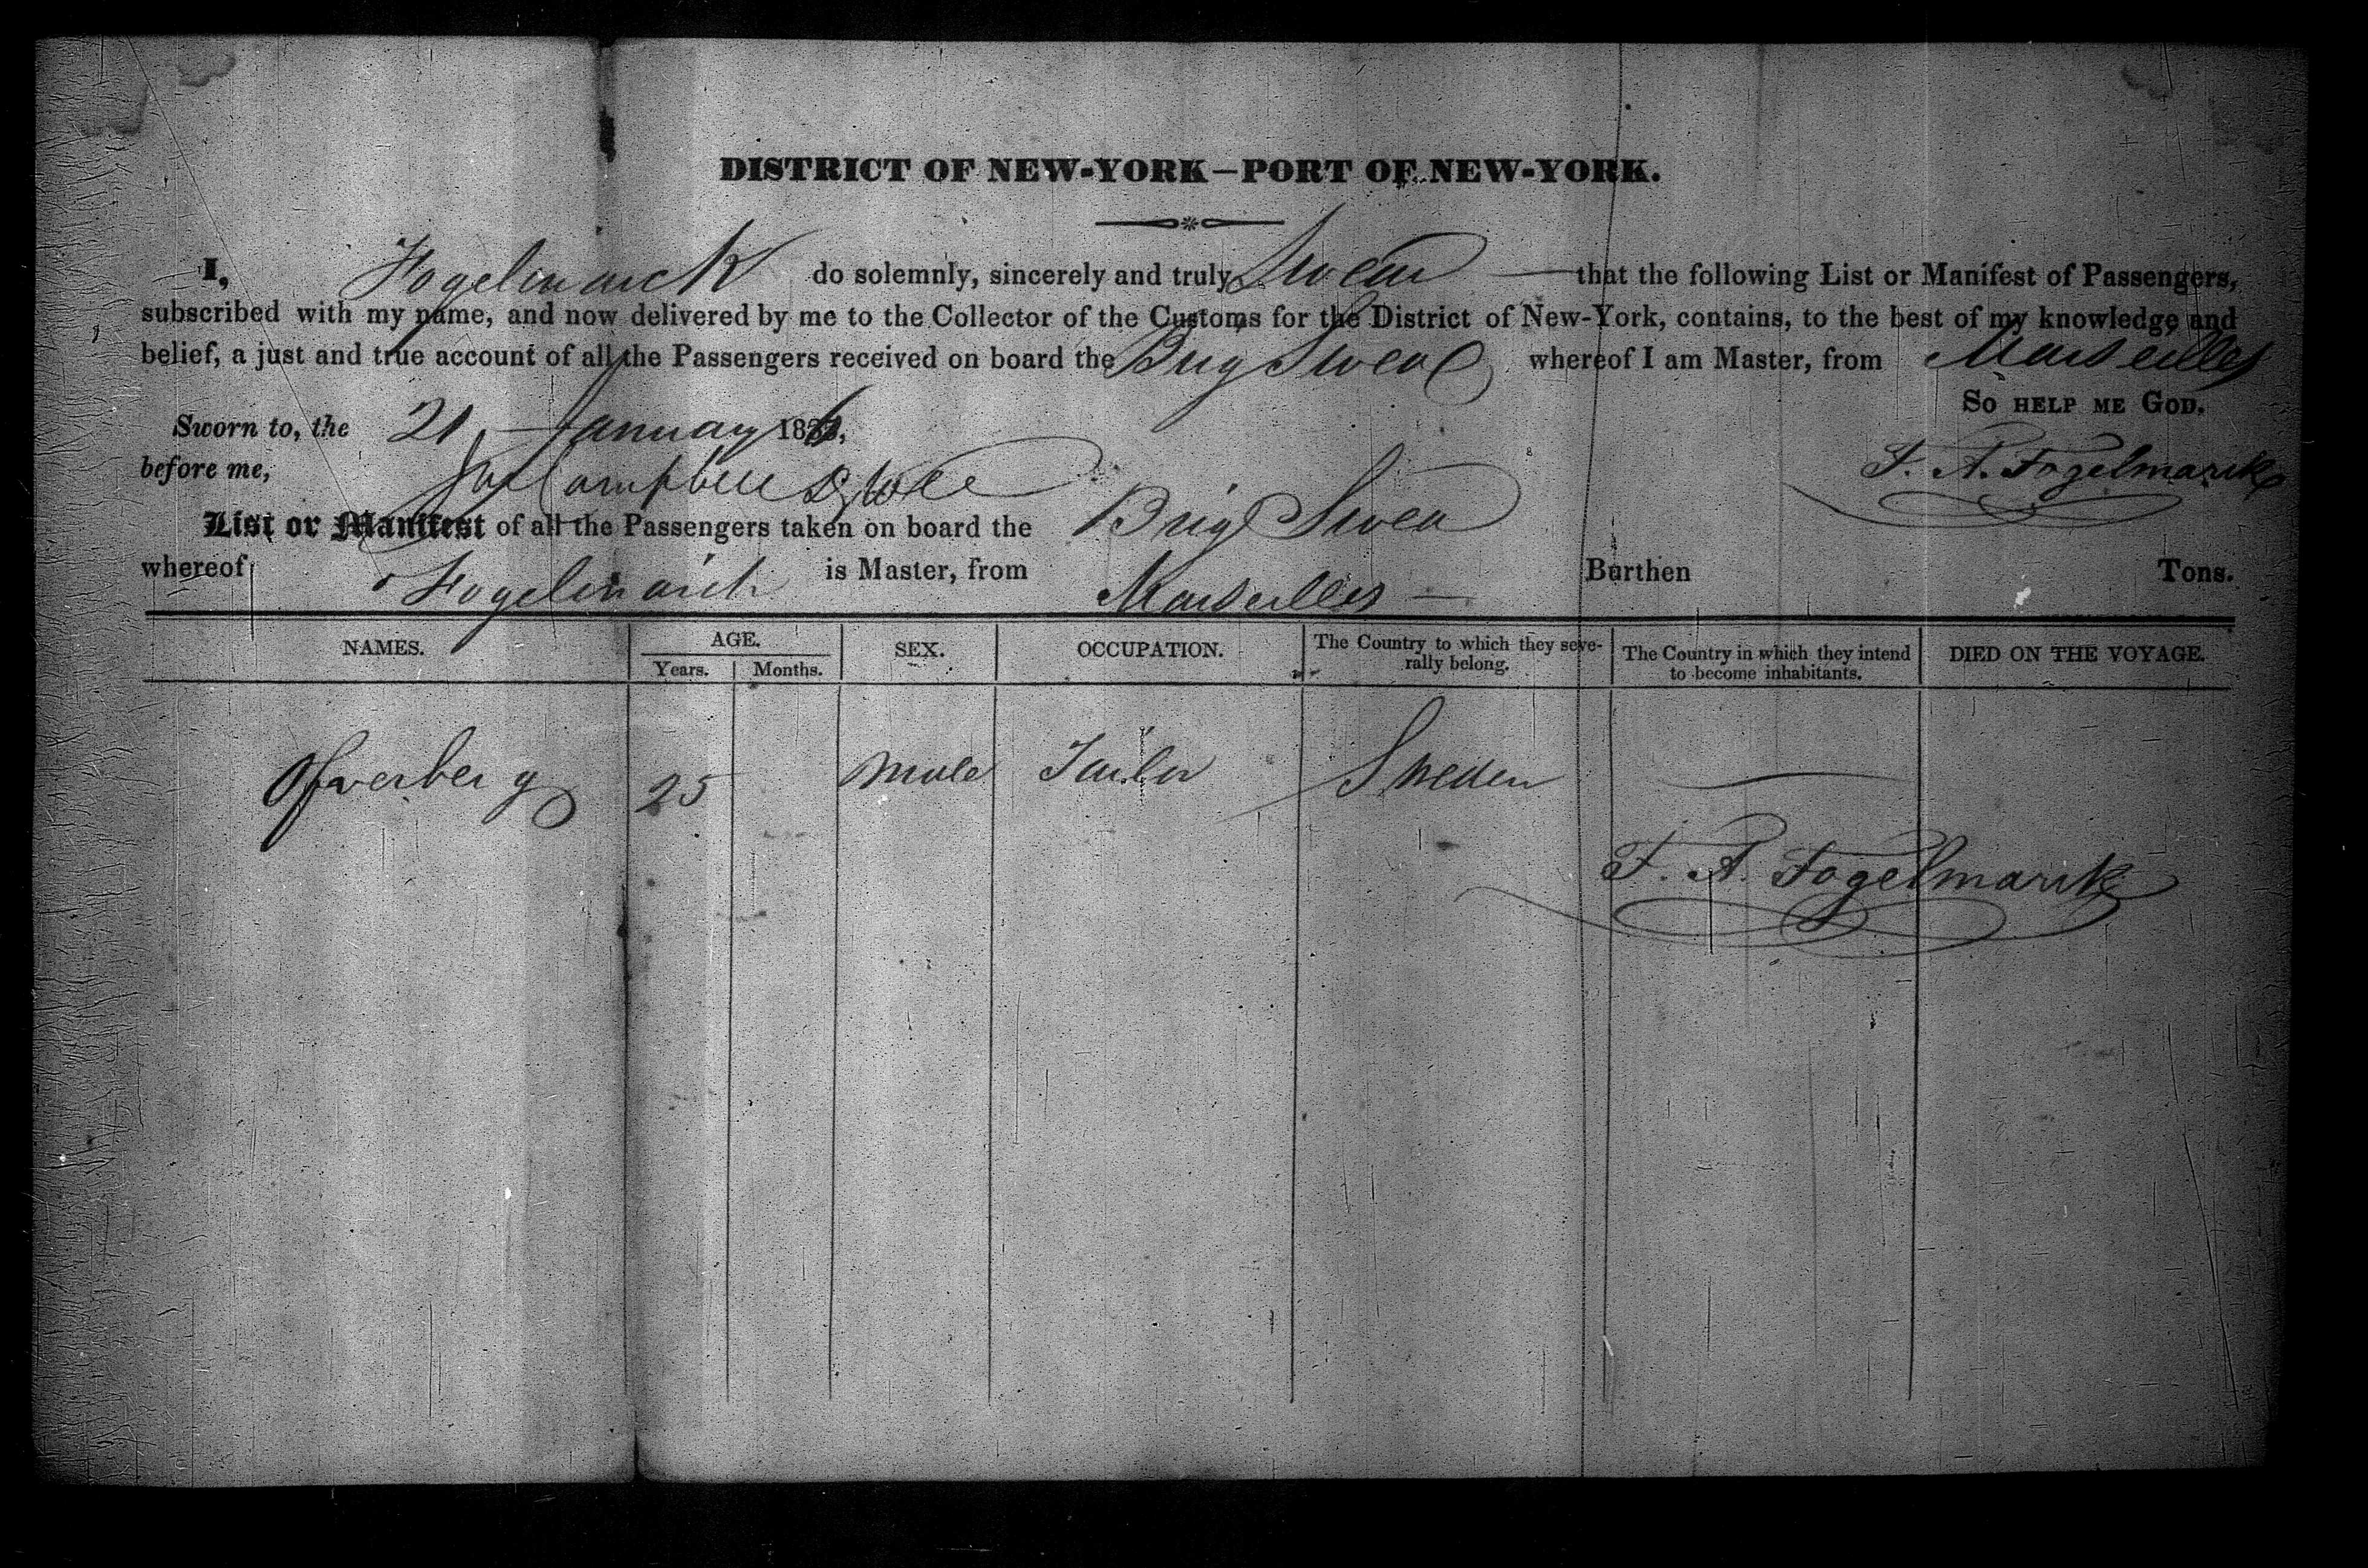 DISTRICT OF NEW-YORK—PORT OF NEW-YORK.
I, Fogelmarck do solemnly, sincerely and truly Swear — that the following List or Manifest of Passengers,
subscribed with my name, and now delivered by me to the Collector of the Customs for the District of New-York, contains, to the best of my knowledge and
belief, a just and true account of all the Passengers received on board the Brig Swea whereof I am Master, from Marseilles
So HELP ME GOD.
Sworn to, the 21 January 18
before me, Campbell
F. A. Fogelmarck
List or Manifest of all the Passengers taken on board the Brig Swea
whereof Fogelmarck is Master, from Marseilles — Burthen Tons.
NAMES. AGE. SEX. OCCUPATION. The Country to which they seve-rally belong. The Country in which they intend to become inhabitants. DIED ON THE VOYAGE.
Years. Months.
Ofverberg 25 Male Tailor Sweden —
F. A. Fogelmarck